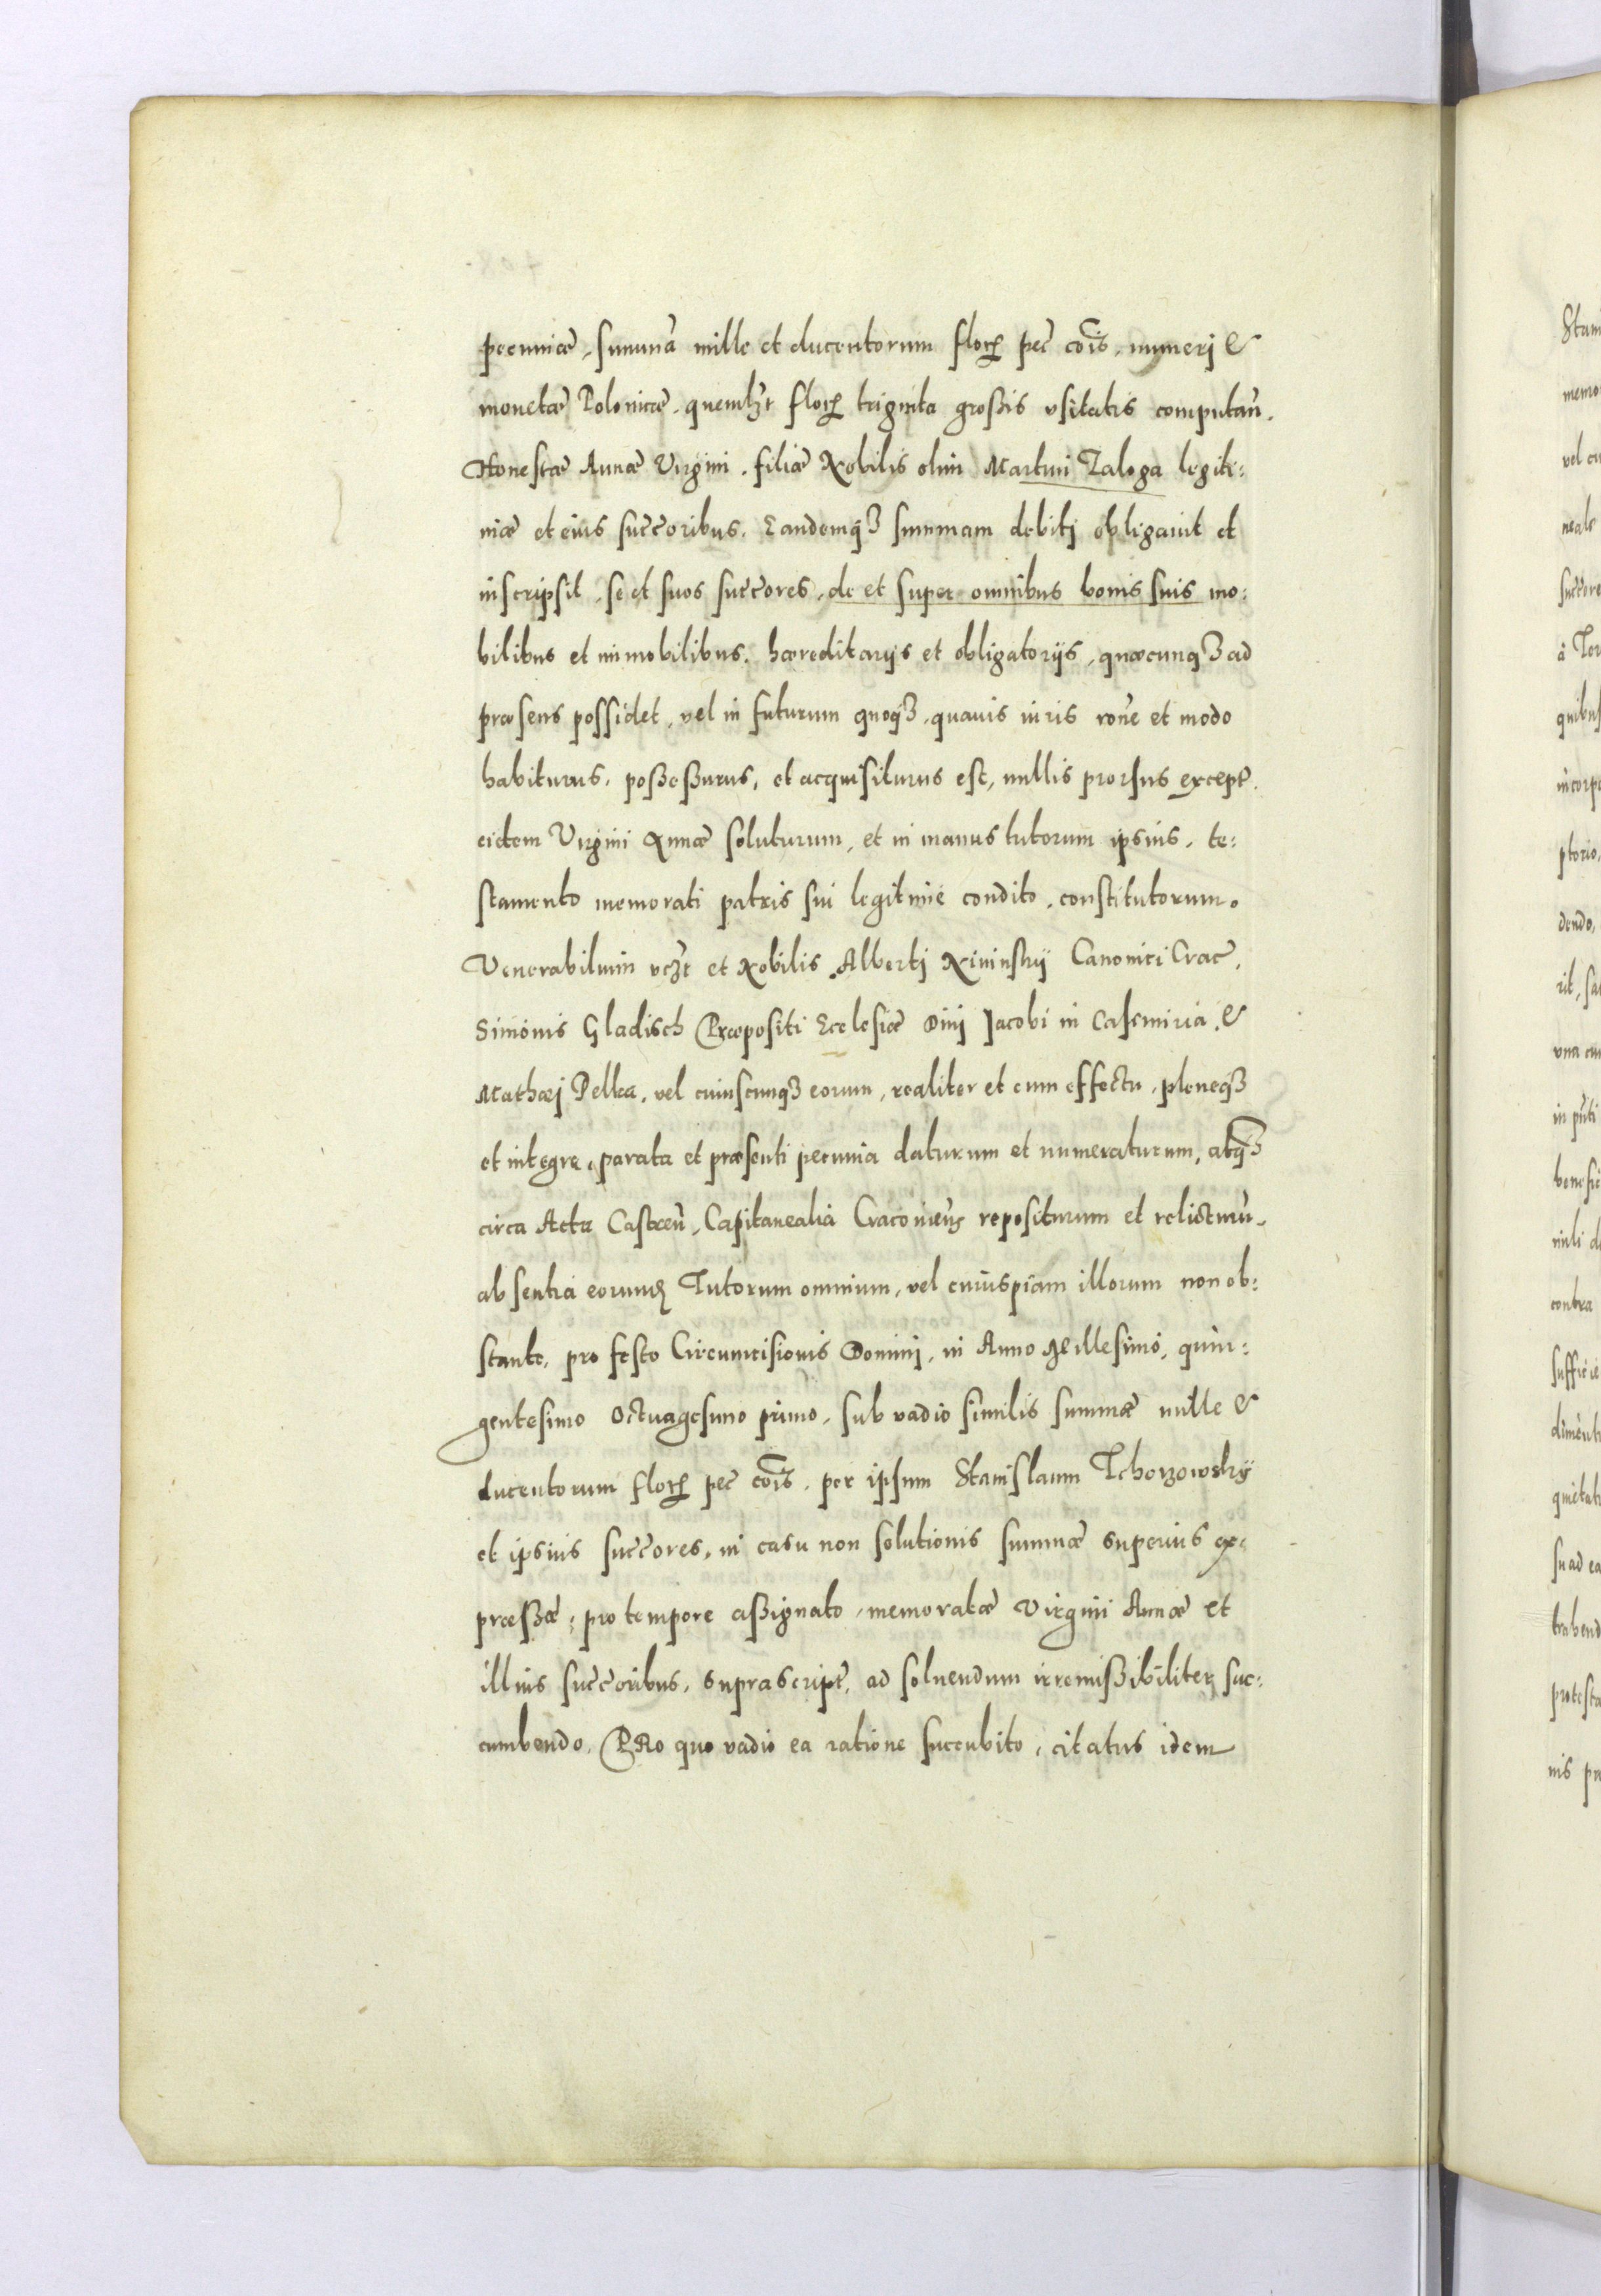 pecuniæ, summã mille et ducentorum floꝝ pec̃ cõis, numerj &
monetæ Polonicæ, quemlꝫt floꝝ triginta großis vsitatis computan̄.
Honestæ Annæ Virgini, filiæ Nobilis olim Martini Taloga legiti:
mæ et eius succ̃oribus. Eandemqꝫ summam debitj obligauit et
inscripsit, se et suos succ̃ores, de et super omnibus bonis suis mo:
bilibus et immobilibus, hæreditarijs et obligatorijs, quæcunqꝫ ad
præsens possidet, vel in futurum quoqꝫ, quauis iuris rõne et modo
habiturus, poßeßurus, et acquisiturus est, nullis prorsus except̃.
eidem Virgini Annæ soluturum, et in manus tutorum ipsius, te:
stamento memorati patris sui legitimè condito, constitutorum.
Venerabilium vcꝫt et Nobilis Albertj Kininskij Canonici Crac̃,
Simonis Gladisch Præpositi Ecclesiæ Diui Jacobi in Casimiria, &
Mathæj Pelka, vel cuiuscunqꝫ eorum, realiter et cum effectu, pleneqꝫ
et integre, parata et præsenti pecunia daturum et numeraturum, atqꝫ
circa Acta Castren̄, Capitanealia Cracouien̄ẜ repositurum et relicturũ,
absentia eorundẽ Tutorum omnium, vel cuiuspiam illorum non ob:
stante, pro festo Circumcisionis Domini, in Anno Millesimo, quin:
gentesimo Octuagesimo primo, sub vadio similis summæ mille &
ducentorum floꝝ pec̃ cõis, per ipsum Stanislaum Tchorzowskÿ
et ipsius succ̃ores, in casu non solutionis summæ superius ex:
præßæ, pro tempore aßignato, memoratæ Virgini Annæ et
illius succ̃oribus, suprascript̃, ad soluendum irremißibiliter suc:
cumbendo, PRo quo vadio ea ratione succubito, citatus idem